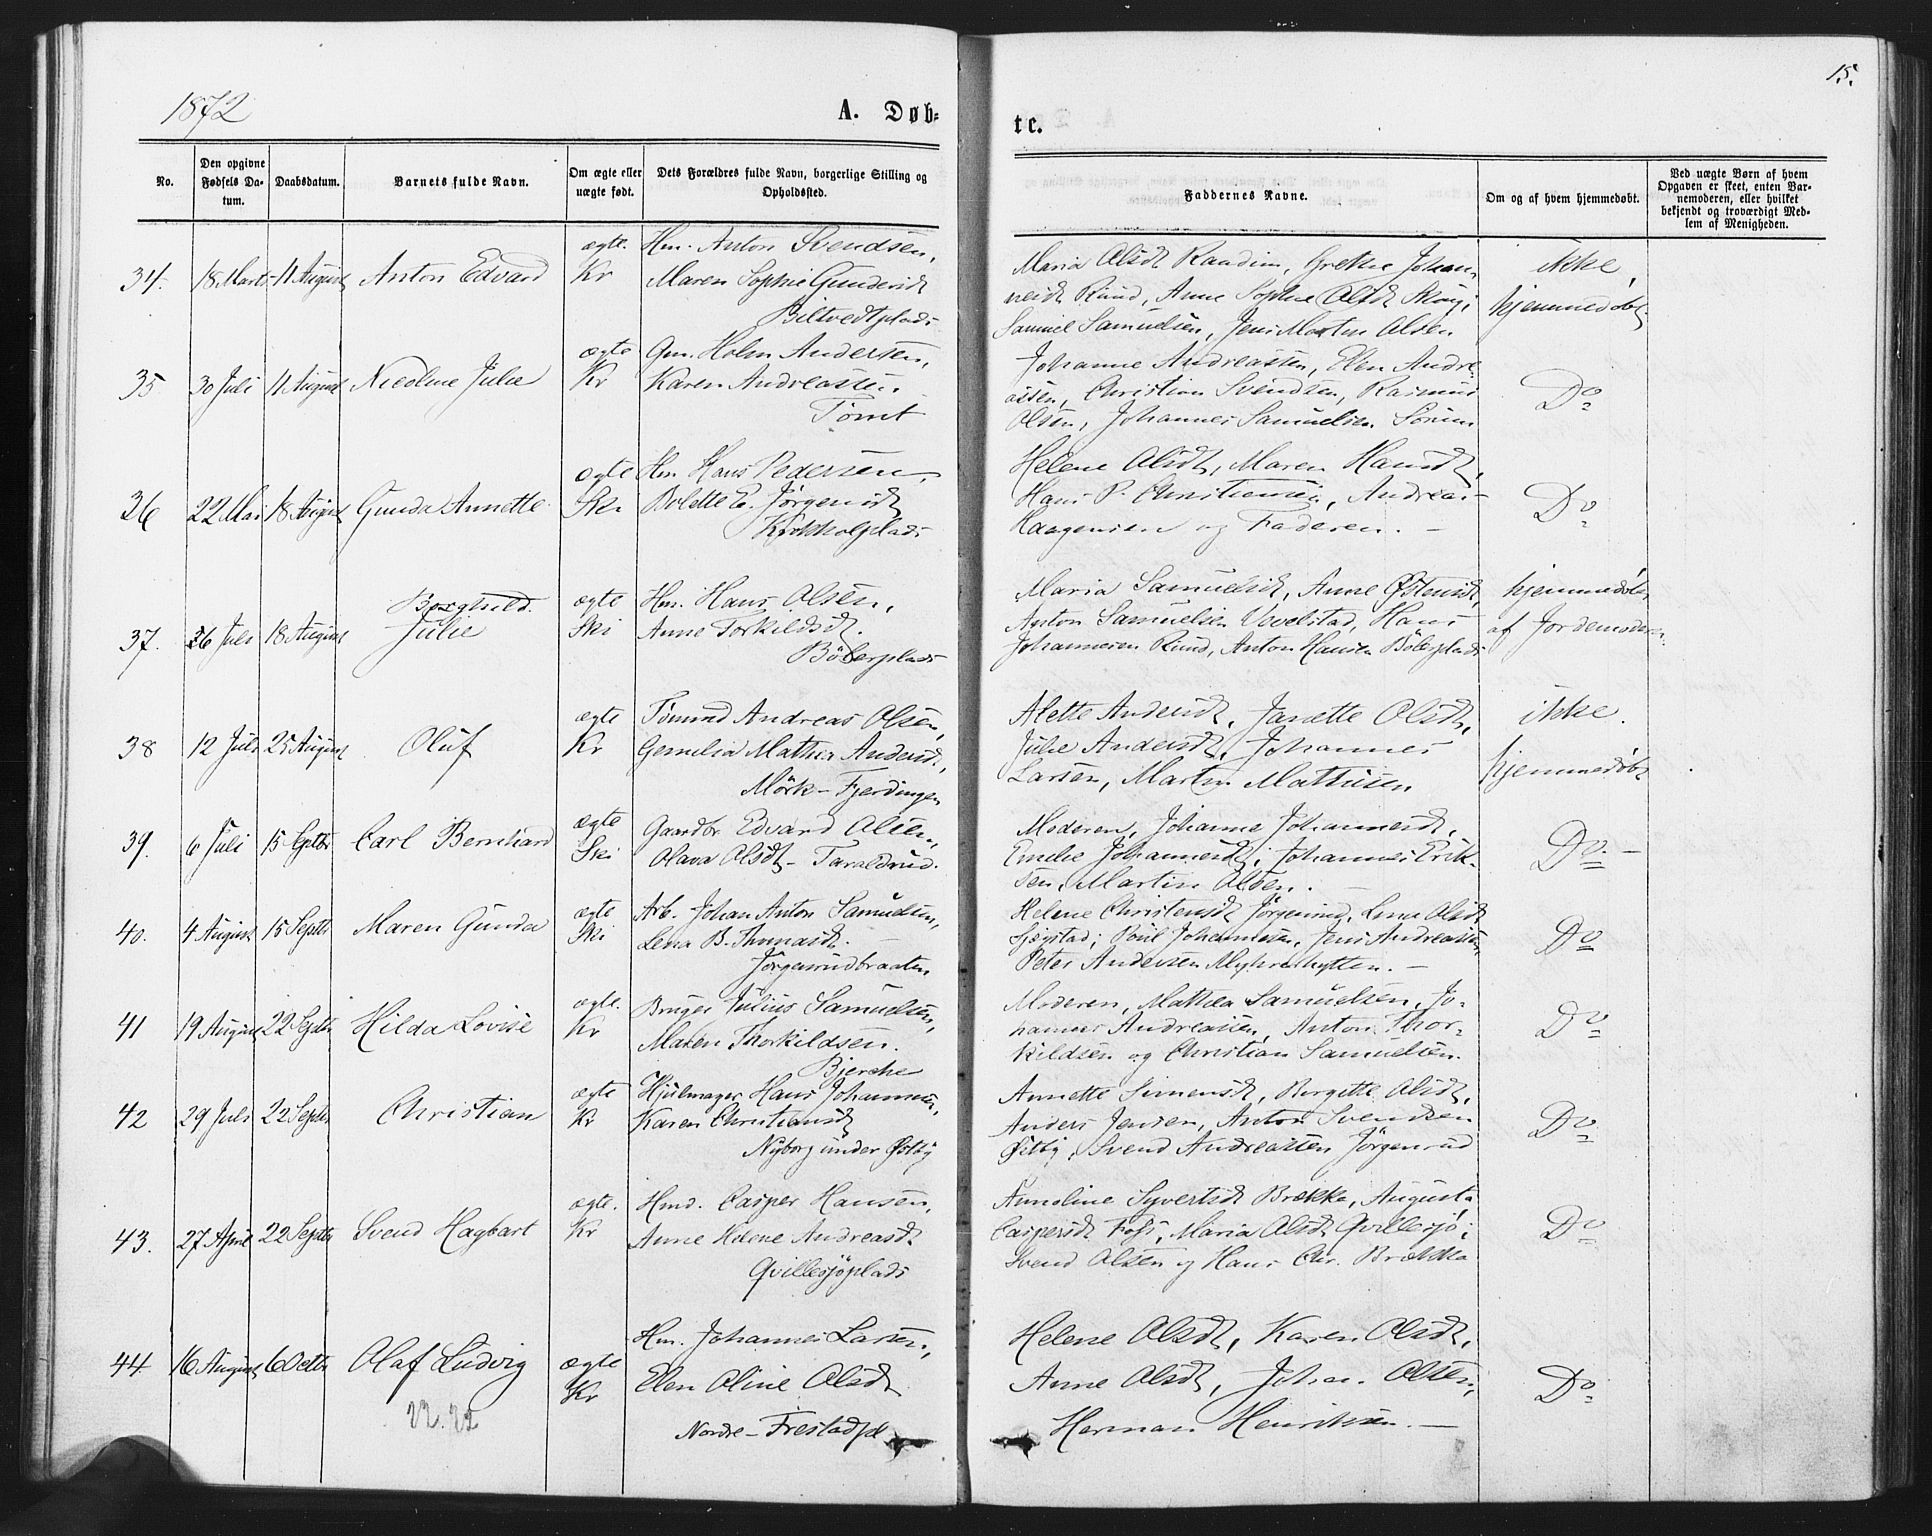 1872
A. Døb-
te.
15.
No.
Den opgivne Fødsels Da-tum.
Daabsdatum.
Barnets fulde Navn.
Om ægte eller uægte født.
Dets Forældres fulde Navn, borgerlige Stilling og Opholdssted.
Faddernes Navne.
Om og af hvem hjemmedøbt.
Ved uægte Børn af hvem Opgaven er skeet, enten Bar-nemoderen, eller hvilket bekjendt og troværdigt Med-lem af Menigheden.
34. 18 Marts 11 August Anton Edvard ægte. Kr
Hm. Anton Svendsen,
Maren Sophie Gundersdt
Biltvedtplads
Maria Olsdt Raadim, Grethe Johan-
nesdt Riud, Anne Sophie Olsdt Skoug;
Samuel Samuelsen, Jens Martin Olsen
ikke,
hjemmedøbt.
35. 30 Juli 11 August Nicoline Julie ægte Kr
Gm. Holm Andersen,
Karen Andreassen.
Tømt
Johanne Andreassen, Elen Andre-
assen, Christian Svendsen, Rasmus
Olsen, Johannes Samuelsen Sørum
Do
36 22 Mai 18 August Gunda Annette ægte Ski
Hm. Hans Pedersen,
Bolette E. Jørgensdt
Kirkholtplads
Helene Olsdt, Maren Hansdt,
Hans P. Christiansen, Andreas
Haagensen og Faderen. -
Do
37. 26 Juli 18 August
Borghild.
Julie ægte Ski
Hm. Hans Olsen,
Anne Torkildsdt.
Bölerplads
Maria Samuelsdt, Anne Østensdt,
Anton Samuelsen Vevelstad, Hans
Johannesen Riud, Anton Hansen Bölerplads
hjemmedøbt,
af Jordemoderen
38 12 Juli 25 August Oluf ægte Kr
Tømmd Andreas Olsen,
Gemelia Mathea Andersdt,
Mörk - Fjerdingen
Alette Andersdt, Janette Olsdt,
Julie Andersdt, Johannes
Larsen, Martin Mathisen
ikke.
hjemmedøbt
39. 6 Juli 15 Septbr Carl Bernhard ægte Ski
Gaardbr Edvard Olsen,
Olava Olsdt - Taraldrud.
Moderen, Johanne Johannesdt,
Emelie Johannesdt; Johannes Erik-
sen, Martin Olsen. -
Do. -
40. 4 August 15 Septbr Maren Gunda ægte Ski
Arb. Johan Anton Samuelsen,
Lena B. Thomasdt. -
Jörgensrudbraaten
Helene Christensdt Jørgensrud, Lena Olsdt
Sjøgstad; Poul Johannesen, Jens Andreassen,
Peter Andersen Myhrerhytten. -
Do
41 19 August 22 Septbr Hilda Lovise ægte. Kr
Bruger Julius Samuelsen,
Maren Thorkildsen.
Bjerche
Moderen, Mathea Samuelsen, Jo-
hannes Andreassen, Anton Thor-
kildsen og Christian Samuelsen.
Do
42 29 Juli 22 Septbr Christian ægte Kr
Hjulmager Hans Johannes,
Karen Christiansdt
Nyborg under Østby
Annette Simensdt, Borgitte Olsdt,
Anders Jensen, Anton Svendsen
Østby, Svend Andreassen Jörgensrud
Do
43. 27 April 22 Septbr Svend Hagbart ægte. Kr
Hmd. Casper Hansen,
Anne Helene Andreasdt
Qvillesjöplads
Anneline Syvertsdt Brække, Augusta
Caspersdt Foss, Maria Olsdt Qvillesjø;
Svend Olsen og Hans Chr. Brække
Do
44. 16 August 6 Octbr Olaf Ludvig ægte Kr
22.22
Hm. Johannes Larsen,
Elen Oline Olsdt
Nordre - Frestadpl
Helene Olsdt, Karen Olsdt,
Anne Olsdt, Johan Olsen,
Herman Henriksen. -
Do